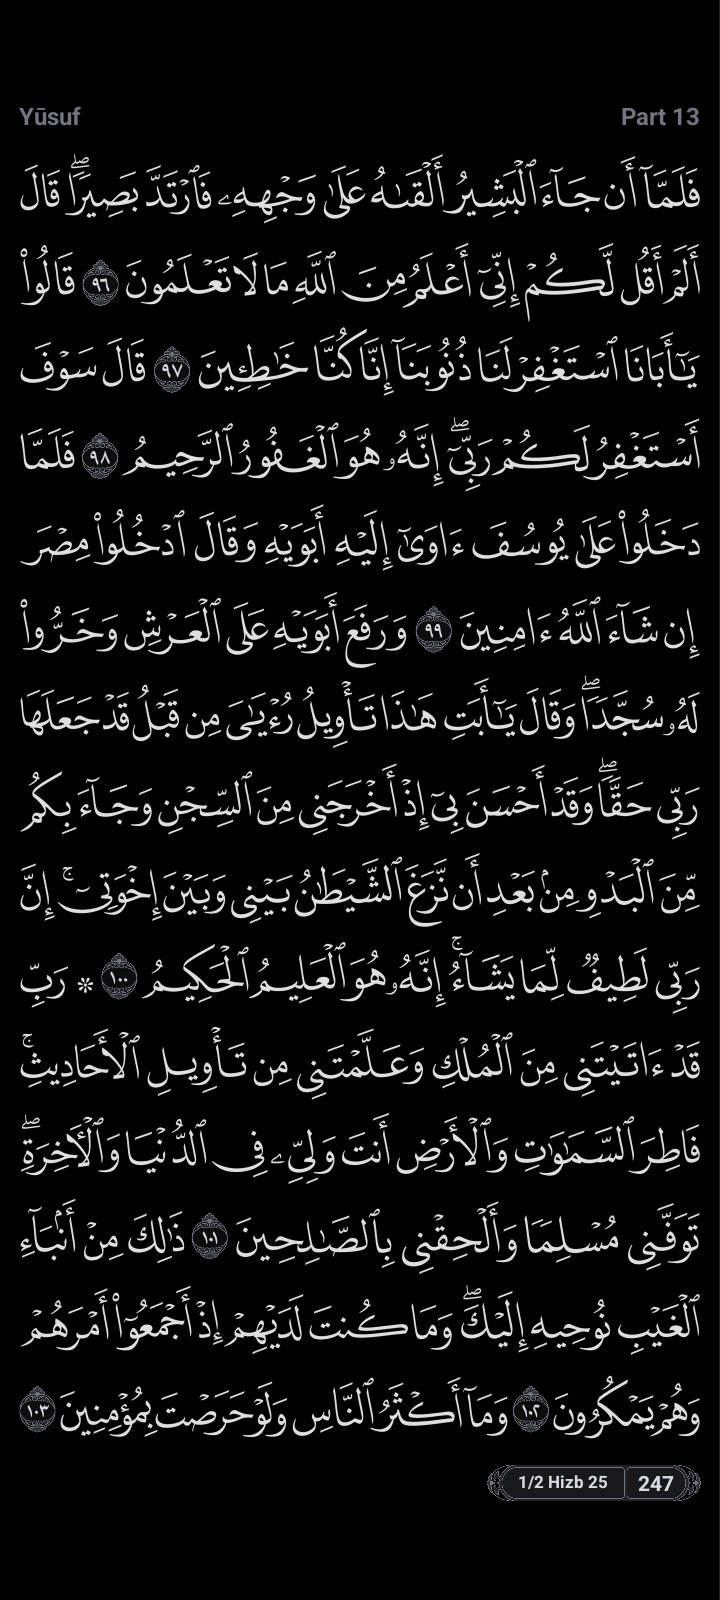 Yūsuf
Part 13
فَلَمَّآ أَن جَآءَ ٱلْبَشِيرُ أَلْقَىٰهُ عَلَىٰ وَجْهِهِۦ فَٱرْتَدَّ بَصِيرًۭا ۖ قَالَ
أَلَمْ أَقُل لَّكُمْ إِنِّىٓ أَعْلَمُ مِنَ ٱللَّهِ مَا لَا تَعْلَمُونَ ٩٦ قَالُوا۟
يَـٰٓأَبَانَا ٱسْتَغْفِرْ لَنَا ذُنُوبَنَآ إِنَّا كُنَّا خَـٰطِـِٔينَ ٩٧ قَالَ سَوْفَ
أَسْتَغْفِرُ لَكُمْ رَبِّىٓ ۖ إِنَّهُۥ هُوَ ٱلْغَفُورُ ٱلرَّحِيمُ ٩٨ فَلَمَّا
دَخَلُوا۟ عَلَىٰ يُوسُفَ ءَاوَىٰٓ إِلَيْهِ أَبَوَيْهِ وَقَالَ ٱدْخُلُوا۟ مِصْرَ
إِن شَآءَ ٱللَّهُ ءَامِنِينَ ٩٩ وَرَفَعَ أَبَوَيْهِ عَلَى ٱلْعَرْشِ وَخَرُّوا۟
لَهُۥ سُجَّدًۭا ۖ وَقَالَ يَـٰٓأَبَتِ هَـٰذَا تَأْوِيلُ رُءْيَـٰىَ مِن قَبْلُ قَدْ جَعَلَهَا
رَبِّى حَقًّۭا ۖ وَقَدْ أَحْسَنَ بِىٓ إِذْ أَخْرَجَنِى مِنَ ٱلسِّجْنِ وَجَآءَ بِكُم
مِّنَ ٱلْبَدْوِ مِنۢ بَعْدِ أَن نَّزَغَ ٱلشَّيْطَـٰنُ بَيْنِى وَبَيْنَ إِخْوَتِىٓ ۚ إِنَّ
رَبِّى لَطِيفٌۭ لِّمَا يَشَآءُ ۚ إِنَّهُۥ هُوَ ٱلْعَلِيمُ ٱلْحَكِيمُ ١٠٠ * رَبِّ
قَدْ ءَاتَيْتَنِى مِنَ ٱلْمُلْكِ وَعَلَّمْتَنِى مِن تَأْوِيلِ ٱلْأَحَادِيثِ ۚ
فَاطِرَ ٱلسَّمَـٰوَٰتِ وَٱلْأَرْضِ أَنتَ وَلِىِّۦ فِى ٱلدُّنْيَا وَٱلْـَٔاخِرَةِ ۖ
تَوَفَّنِى مُسْلِمًۭا وَأَلْحِقْنِى بِٱلصَّـٰلِحِينَ ١٠١ ذَٰلِكَ مِنْ أَنۢبَآءِ
ٱلْغَيْبِ نُوحِيهِ إِلَيْكَ ۖ وَمَا كُنتَ لَدَيْهِمْ إِذْ أَجْمَعُوٓا۟ أَمْرَهُمْ
وَهُمْ يَمْكُرُونَ ١٠٢ وَمَآ أَكْثَرُ ٱلنَّاسِ وَلَوْ حَرَصْتَ بِمُؤْمِنِينَ ١٠٣
1/2 Hizb 25
247